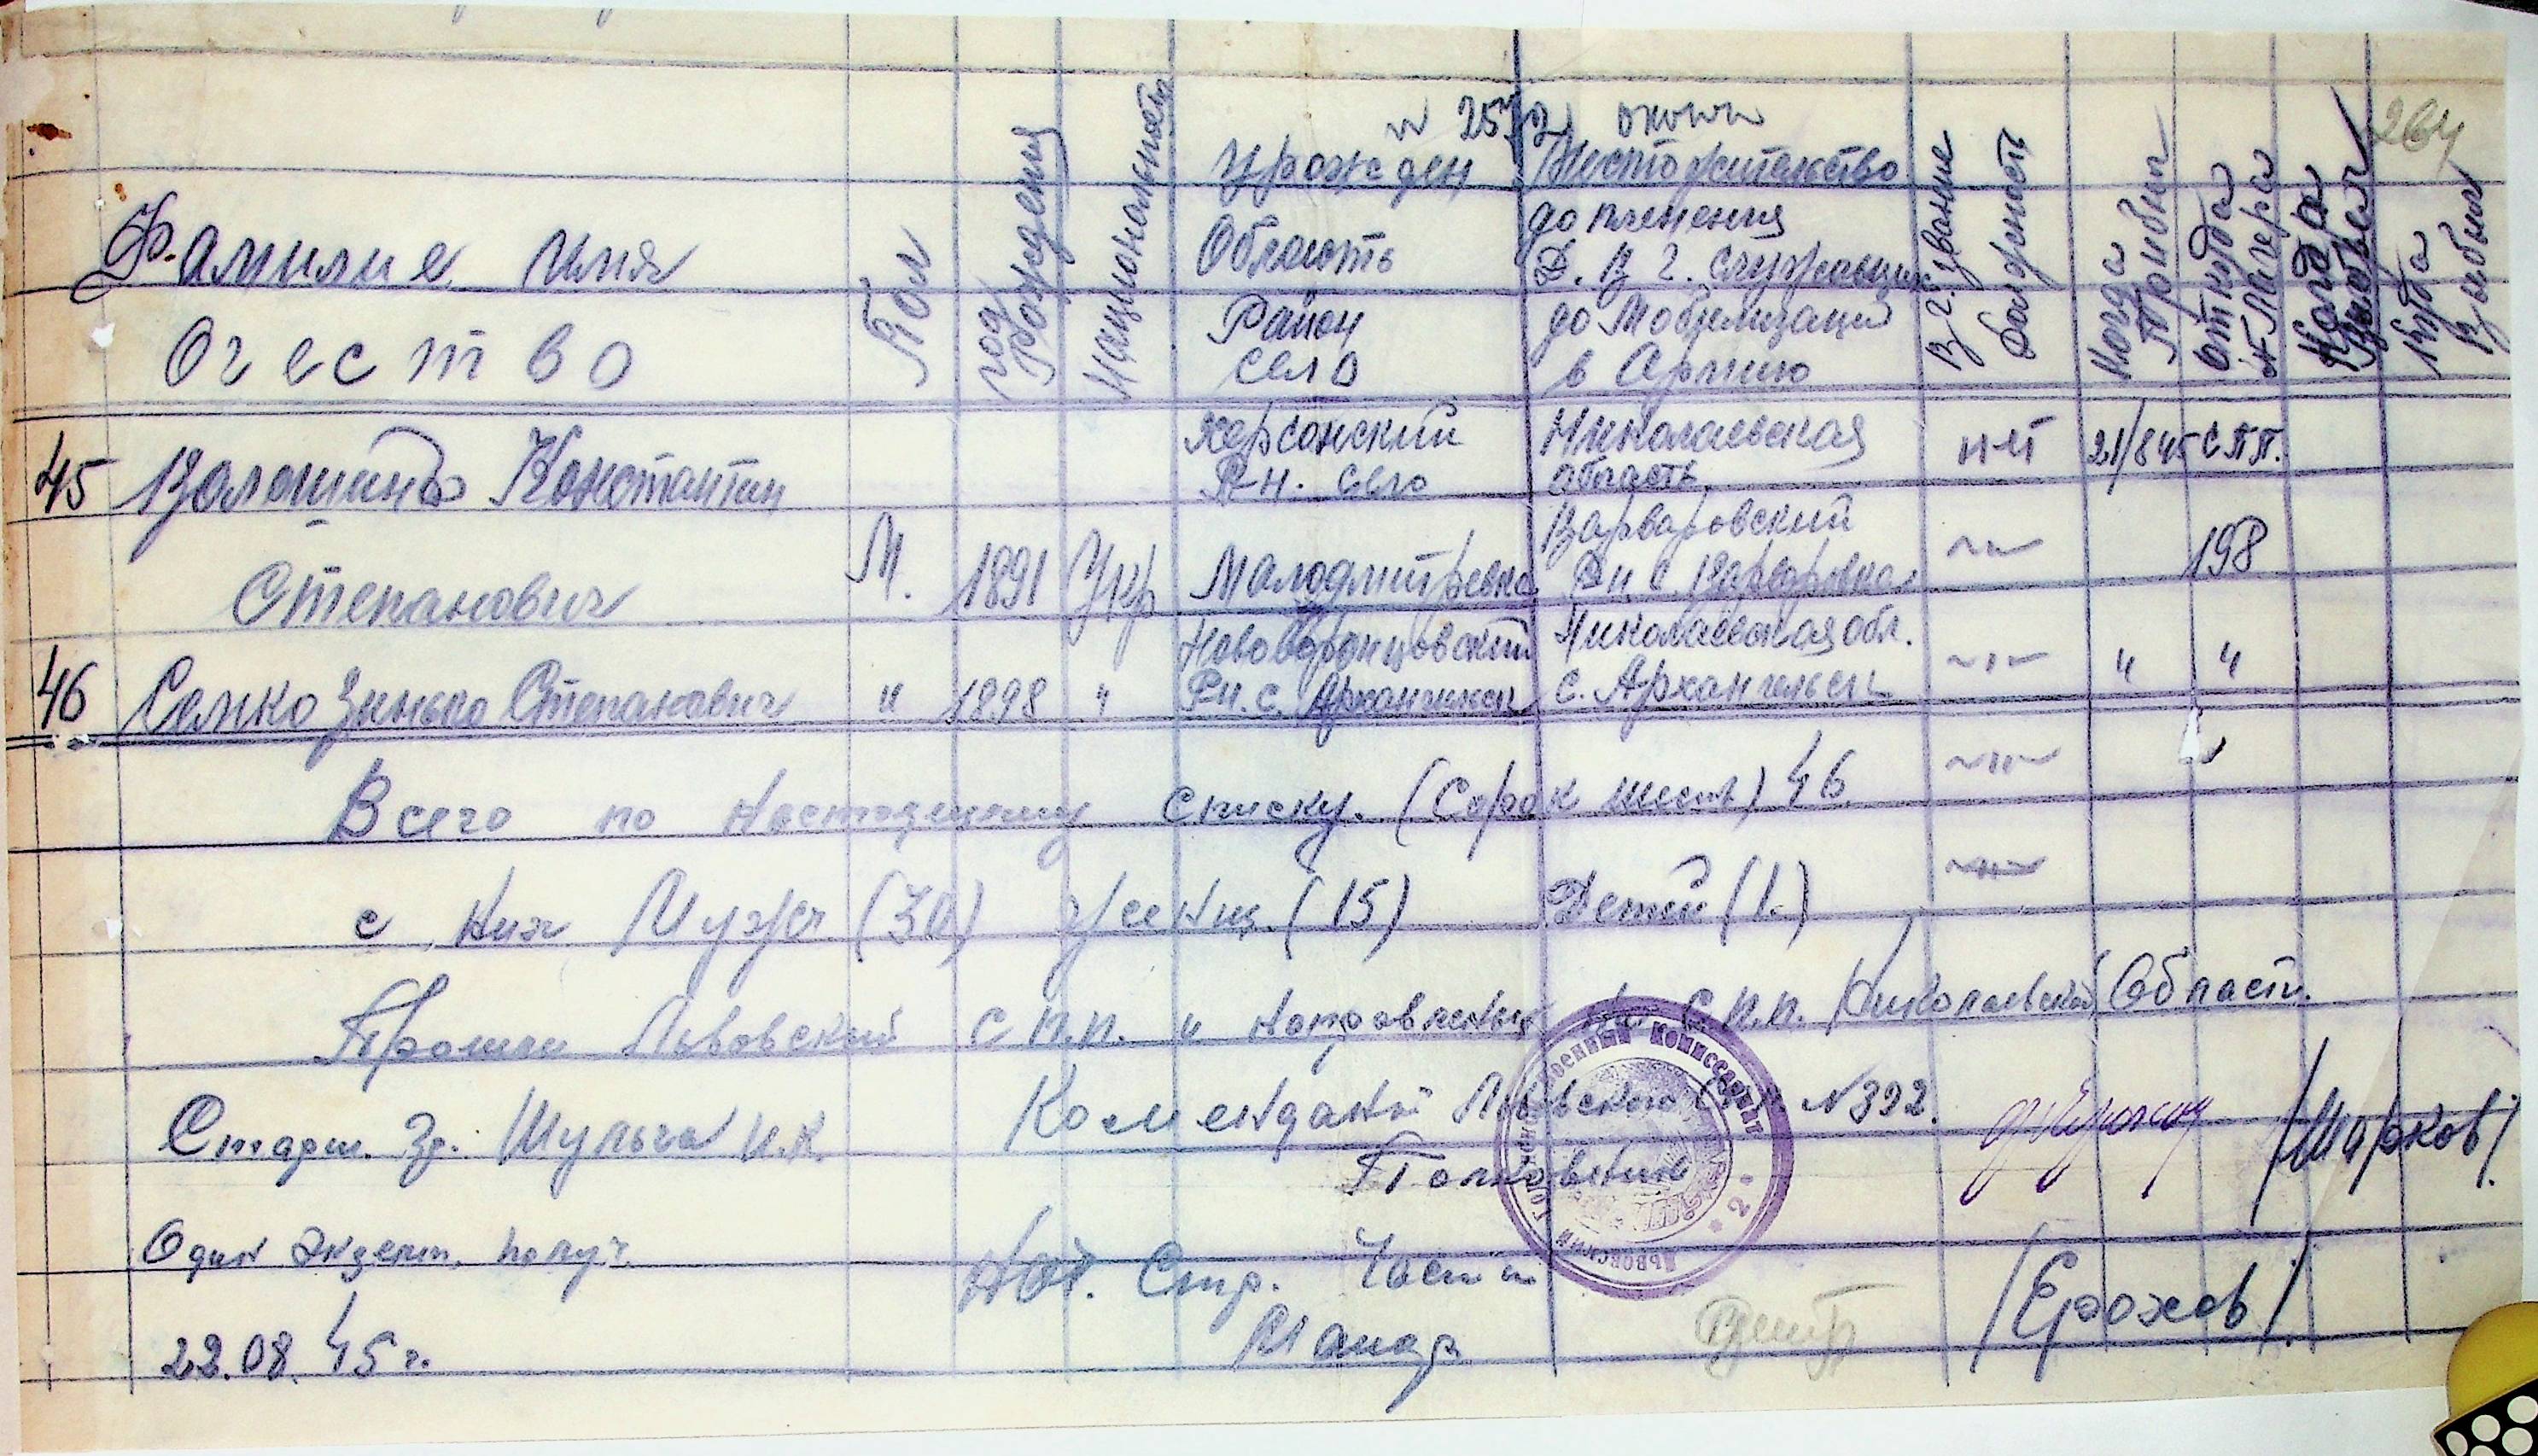 264
Фамилие Имя
Отчество
Пол
год Рождения
Национальность
Урожден
Область
Район
Село
Местожительство
до пленения
до Мобилизации
в Армию
В г. звание
Должность
Когда Прибыл
Откуда
№ Лагера
Когда
Куда Выбыл
45 Волошин Константин
Степанович
М. 1891 Укр
Херсонский
Р-н. Село
Малодмитревка
Николаевская
область
Варваровский
Р-н с. Варваровка
нет 21/845 С П П.
198
46 Семко Зинько Степанович
" 1898 "
Нововоронцовский
Р-н. с. Архангельск
Николаевская обл.
с. Архангельск
" "
Всего по настоящему списку. (Сорок шесть) 46
с них Мужч (30) женщ. (15) Детей (1.)
Прошли Львовский С П.П. и направлены на С.П.П. Николаевской Област.
Старш. гр. Шульга И.К.
Комендант Львовского СПП №392.
Полковник
/Марков/.
Один экземп. получ.
Нач. Стр. Части
Майор
/Ерохов/.
22.08.45 г.
ЛЬВОВСКИЙ ГОРОДСКОЙ ВОЕННЫЙ КОМИССАРИАТ
* 2 *